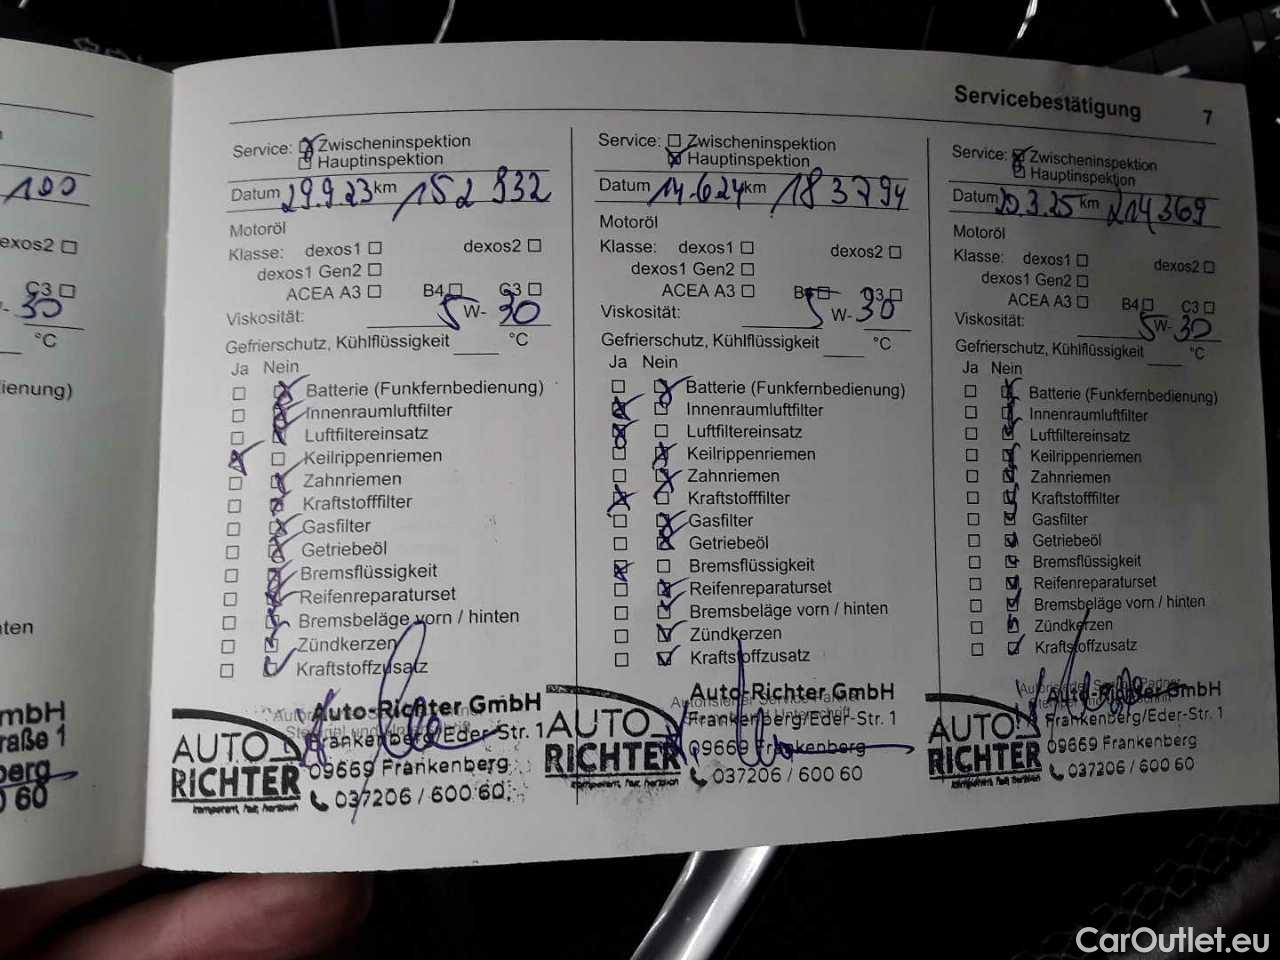 100
exos2
C3
30
°C
ienung)
ten
mbH
raße 1
berg
0 60
Servicebestätigung 7
Service: Zwischeninspektion
Hauptinspektion
Datum 29.9.23 km 152 932
Motoröl
Klasse: dexos1 dexos2
dexos1 Gen2
ACEA A3 B4 C3
Viskosität: 5 W- 30
Gefrierschutz, Kühlflüssigkeit °C
Ja Nein
Batterie (Funkfernbedienung)
Innenraumluftfilter
Luftfiltereinsatz
Keilrippenriemen
Zahnriemen
Kraftstofffilter
Gasfilter
Getriebeöl
Bremsflüssigkeit
Reifenreparaturset
Bremsbeläge vorn / hinten
Zündkerzen
Kraftstoffzusatz
AUTO RICHTER
kompetent, fair, herzlich
Auto-Richter GmbH
Frankenberg/Eder-Str. 1
09669 Frankenberg
037206 / 600 60
Service: Zwischeninspektion
Hauptinspektion
Datum 14.6.24 km 183794
Motoröl
Klasse: dexos1 dexos2
dexos1 Gen2
ACEA A3 B4 C3
Viskosität: 5 W- 30
Gefrierschutz, Kühlflüssigkeit °C
Ja Nein
Batterie (Funkfernbedienung)
Innenraumluftfilter
Luftfiltereinsatz
Keilrippenriemen
Zahnriemen
Kraftstofffilter
Gasfilter
Getriebeöl
Bremsflüssigkeit
Reifenreparaturset
Bremsbeläge vorn / hinten
Zündkerzen
Kraftstoffzusatz
AUTO RICHTER
Auto-Richter GmbH
Frankenberg/Eder-Str. 1
09669 Frankenberg
037206 / 600 60
Service: Zwischeninspektion
Hauptinspektion
Datum 20.3.25 km 214369
Motoröl
Klasse: dexos1 dexos2
dexos1 Gen2
ACEA A3 B4 C3
Viskosität: 5 W- 30
Gefrierschutz, Kühlflüssigkeit °C
Ja Nein
Batterie (Funkfernbedienung)
Innenraumluftfilter
Luftfiltereinsatz
Keilrippenriemen
Zahnriemen
Kraftstofffilter
Gasfilter
Getriebeöl
Bremsflüssigkeit
Reifenreparaturset
Bremsbeläge vorn / hinten
Zündkerzen
Kraftstoffzusatz
AUTO RICHTER
kompetent, fair, herzlich
Auto-Richter GmbH
Frankenberg/Eder-Str. 1
09669 Frankenberg
037206 / 600 60
CarOutlet.eu